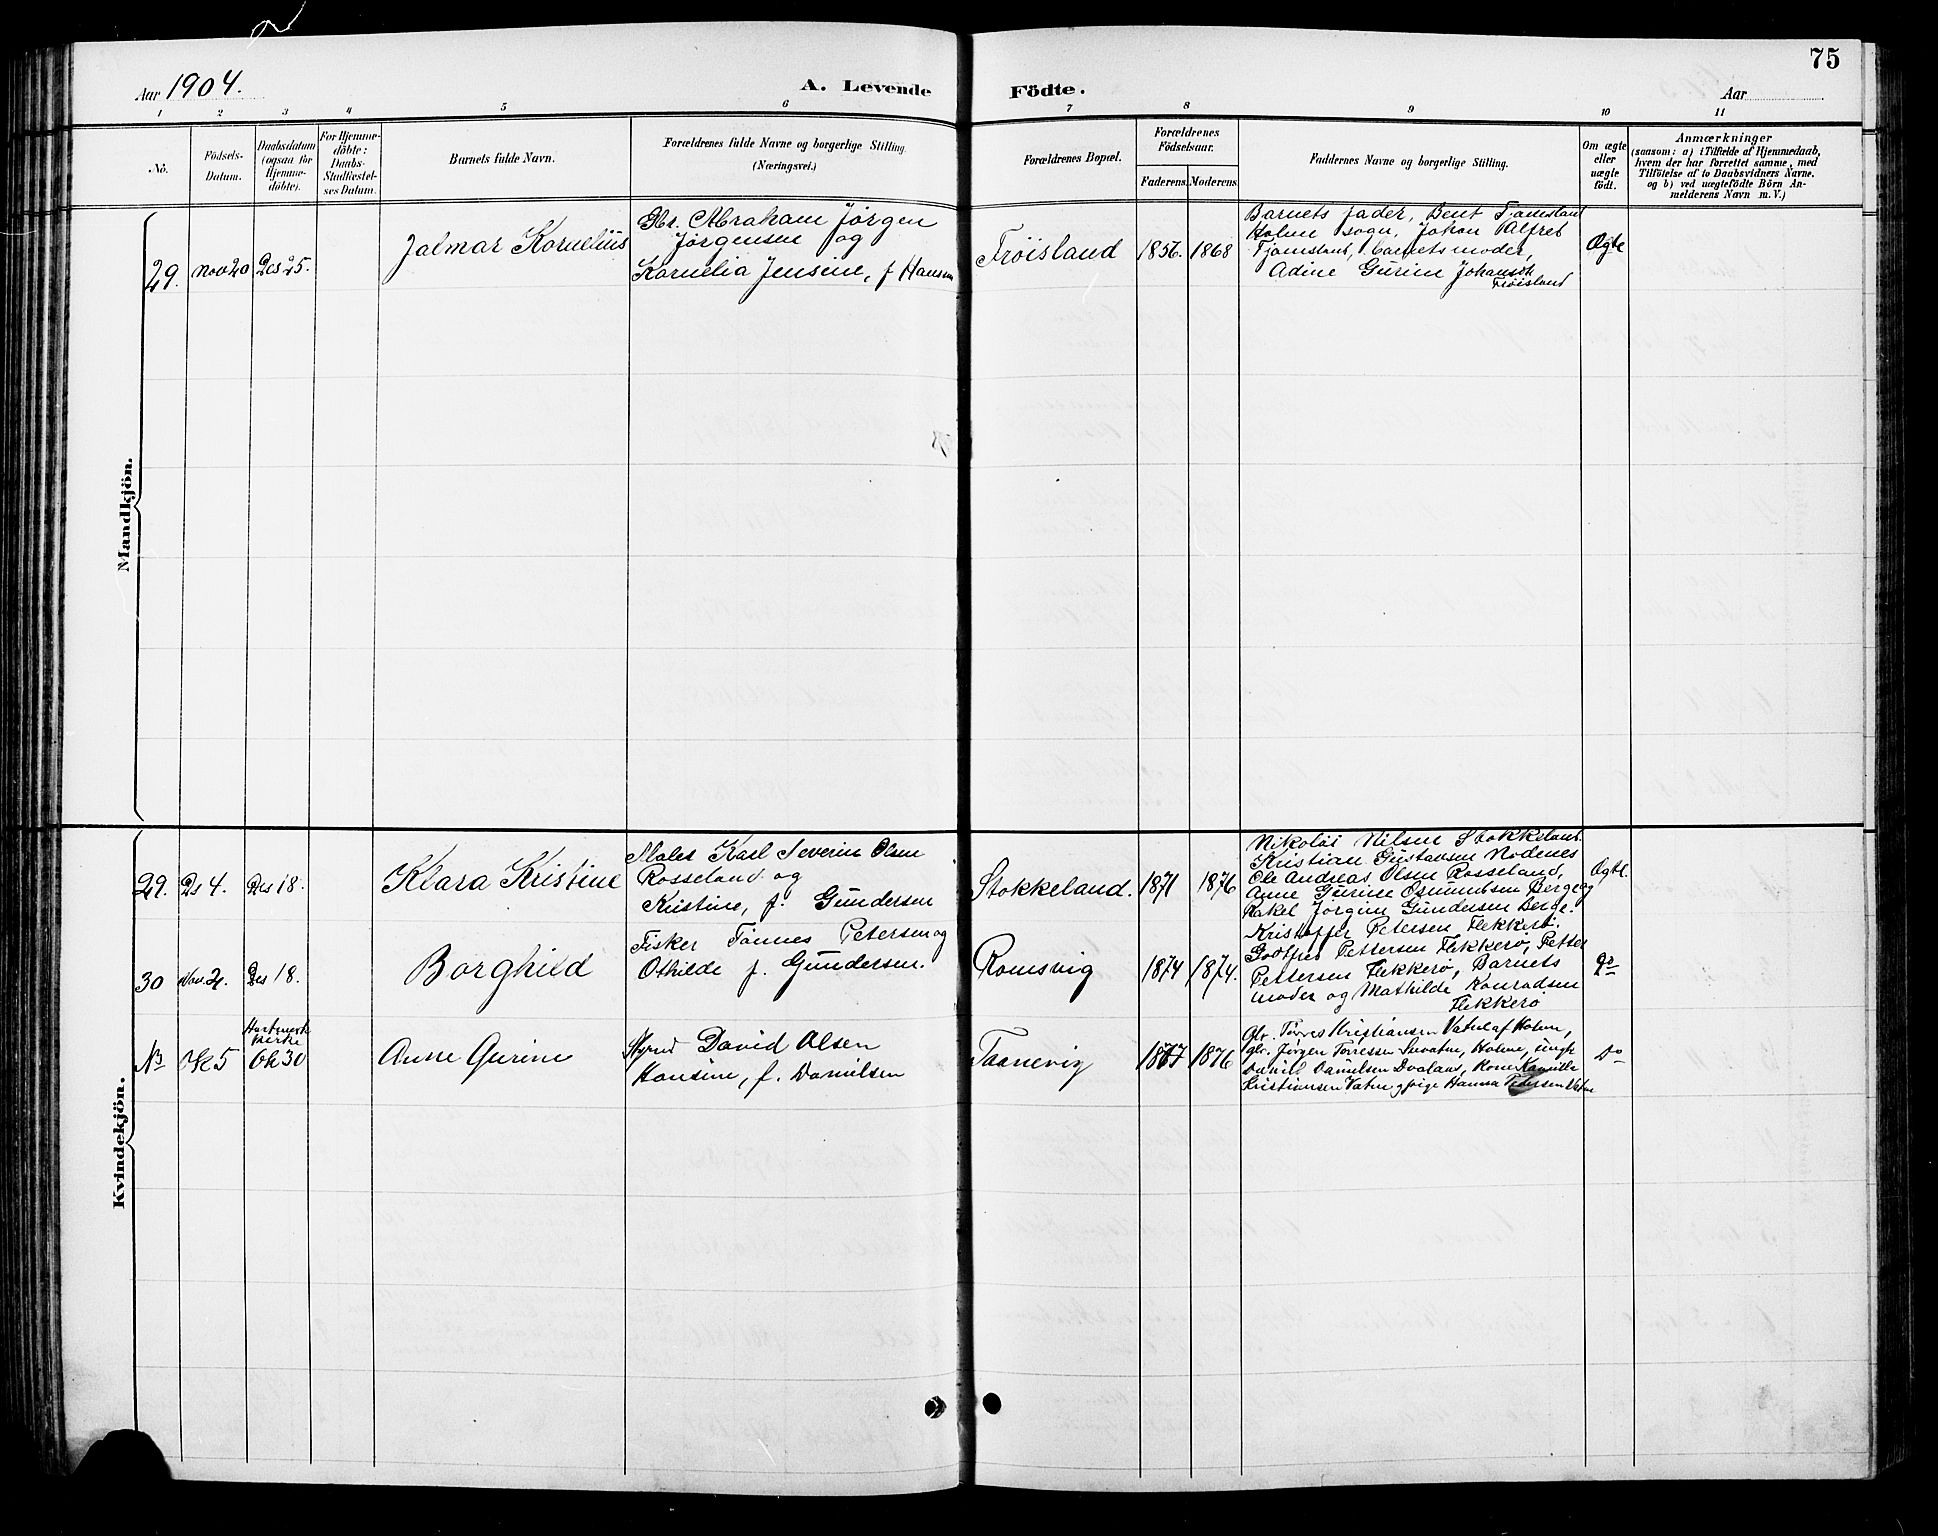 75
Aar 1904.
A. Levende Födte.
Aar
1 2 3 4 5 6 7 8 9 10 11
No.
Födsels-
Datum.
Daabsdatum
(ogsaa for
Hjemme-
döbte).
For Hjemme-
döbte:
Daabs-
Stadfæstel-
ses Datum.
Barnets fulde Navn.
Forældrenes fulde Navne og borgerlige Stilling
(Næringsvei.)
Forældrenes Bopæl.
Forældrenes
Födselsaar.
Faderens. Moderens
Faddernes Navne og borgerlig Stilling.
Om ægte
eller
uægte
födt.
Anmærkninger
(saasom: a) i Tilfælde af Hjemmedaab,
hvem der har forrettet samme, med
Tilföielse af to Daabsvidners Navne.
og b) ved uægtefödte Börn An-
melderens Navn m. V.)
Mandkjön.
29. Nov 20 Des 25.
Jalmar Kornelius
Gbr. Abraham Jørgen
Jørgensen og
Kornelia Jensine, f Hansen
Frøisland
1856. 1868
Barnets fader, Bent Tjamsland
Holme sogn, Johan Alfred
Tjomsland, barnets moder,
Adine Gurine Johansdt
Frøisland
Ægte
Kvindekjön.
29. Ds 4. Des 18.
Klara Kristine
Maler Karl Severin Olsen
Rosseland og
Kristine, f. Gundersen
Stokkeland.
1871 1876
Nikolai Nilsen Stokkeland.
Kristian Gustavsen Nodenes
Ole Andreas Olsen Rosseland,
Anne Gurine Osmundsen Berge og
Rakel Jørgine Gundersen Berge.
Ægte.
30 Nov. 21. Des 18.
Borghild
Fisker Tønnes Petersen og
Othilde f. Gundersen.
Romsvig
1874 1874.
Kristoffer Petersen Flekkerø.
Godtfred Pettersen Flekkerø, Petter
Pettersen Flekkerø, Barnets
moder og Mathilde Konradsen
Flekkerø
do
Hartmark
kirke
Ok 5 Ok 30
Anne Gurine
David Olsen
Hansine, f. Danielsen
Taanevig
1877 1876
Gbr. Tørres Kristiansen Vatne af Holme,
gbr. Jørgen Tørressen Holme, ungk
Daniel Danielsen Kone Kamille
Kristiansen Vatne og pige Hanna Pedersen Vatne
do